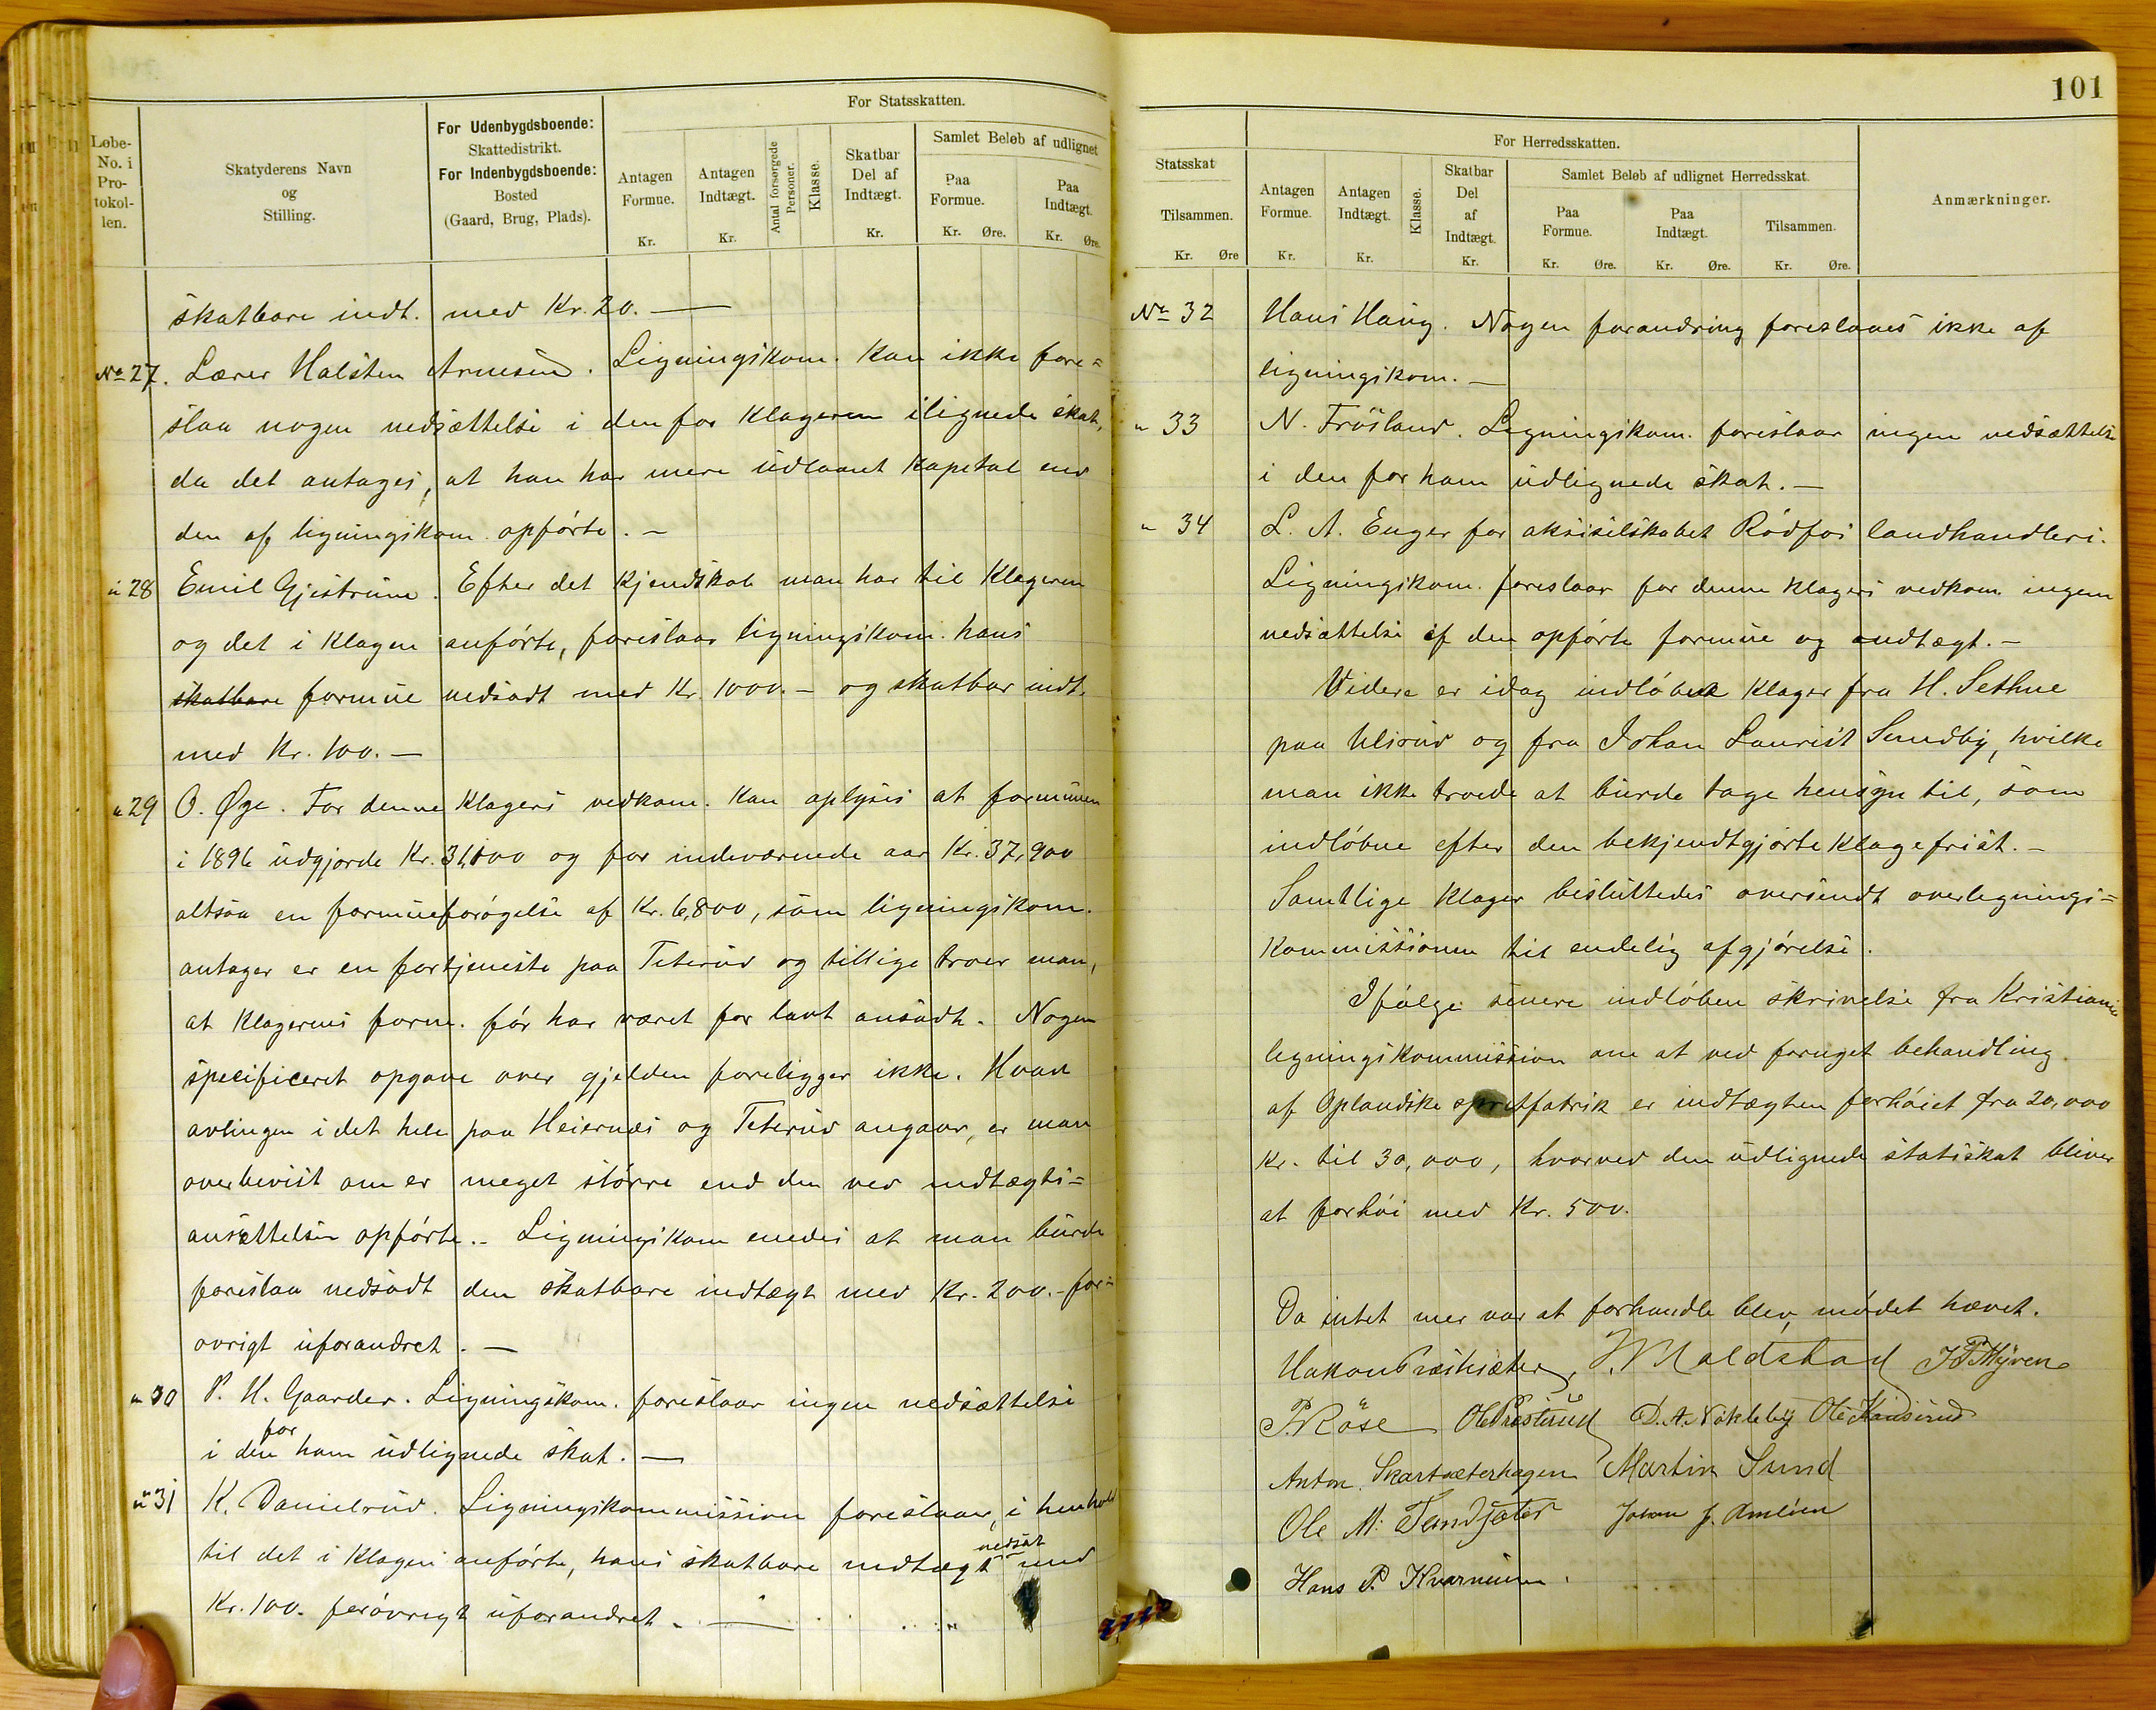 Løbe-No. i Protokollen.
Skatyderens Navn og Stilling.
For Udenbygdsboende: Skattedistrikt. For Indenbygdsboende: Bosted (Gaard, Brug, Plads).
For Statsskatten.
Antagen Formue. Kr.
Antagen Indtægt. Kr.
Antal forsørgede Personer.
Klasse.
Skatbar Del af Indtægt. Kr.
Samlet Beløb af udlignet
Paa Formue. Kr. Øre.
Paa Indtægt. Kr. Øre.
skatbare indt. med Kr. 20. —
No 27. Lærer Halsten Arnesen. Ligningskom. kan ikke fore=
slaa nogen nedsættelse i den for klageren ilignede skat,
da det antages, at han har mere udlaant kapital end
den af ligningskom. opførte. —
" 28 Emil Gjestrum. Efter det kjendskab man har til klageren
og det i klagen anførte, foreslaar ligningskom. hans
skatbare formue nedsadt med Kr. 1000. — og skatbar indt.
med Kr. 100. —
" 29 O. Øye. For denne klagers vedkom. kan oplyses at formuen
i 1896 udgjorde Kr. 31,100 og for indeværende aar Kr. 37,900
altsaa en formueforøgelse af Kr. 6,800, som ligningskom.
antager er en fortjeneste paa Teterud og tillige troer man,
at klagerens form. før har været for lavt ansadt. Nogen
specificeret opgave over gjelden foreligger ikke. Hvad
avlingen i det hele paa Heiernæs og Teterud angaar, er man
overbevist om er meget større end den ved indtægts=
ansættelsen opførte. — Ligningskom enedes at man burde
foreslaa nedsadt den skatbare indtægt med Kr. 200. — for=
øvrigt uforandret. —
" 30 P. H. Gaarder. Ligningskom. foreslaar ingen nedsættelse
i den for ham udlignede skat. —
" 31 K. Danielrud. Ligningskommission foreslaar, i henhold
til det i klagen anførte, hans skatbare indtægt nedsat med
Kr. 100. forøvrigt uforandret. —
101
Statsskat
Tilsammen.
Kr. Øre
For Herredsskatten.
Antagen Formue. Kr.
Antagen Indtægt. Kr.
Klasse.
Skatbar Del af Indtægt. Kr.
Samlet Beløb af udlignet Herredsskat.
Paa Formue. Kr. Øre.
Paa Indtægt. Kr. Øre.
Tilsammen. Kr. Øre.
Anmærkninger.
No 32 Hans Haug. Nogen forandring foreslaaes ikke af
ligningskom. —
" 33 N. Frøsland. Ligningskom. foreslaar ingen nedsættelse
i den for ham udlignede skat. —
" 34 L. A. Enger for aksieselskabet Rødfos landhandleri.
Ligningskom. foreslaar for denne klagers vedkom ingen
nedsættelse af den opførte formue og indtægt. —
Videre er idag indløbet klager fra H. Sethne
paa Ulsrud og fra Johan Laurist Sundby, hvilke
man ikke troede at burde tage hensyn til, som
indløbne efter den bekjendtgjorte klagefrist. —
Samtlige klager besluttedes oversendt overlignings=
kommissionen til endelig afgjørelse.
Ifølge senere indløben skrivelse fra Kristiania
ligningskommission om at ved fornyet behandling
af Oplandske spritfabrik er indtægten forhøiet fra 20,000
Kr. til 30,000, hvorved den udlignede statsskat bliver
at forhøi med Kr. 500.
Da intet mer var at forhandle blev mødet hævet.
Hakon Præstesæter, Maldstad J P Myren
P. Røse Ole Præsterud D. A. Nøkleby Ole
Anton Skartsæterhagen Martin Sund
Ole M. Johan J. Amlien
Hans P. Kvarnum.